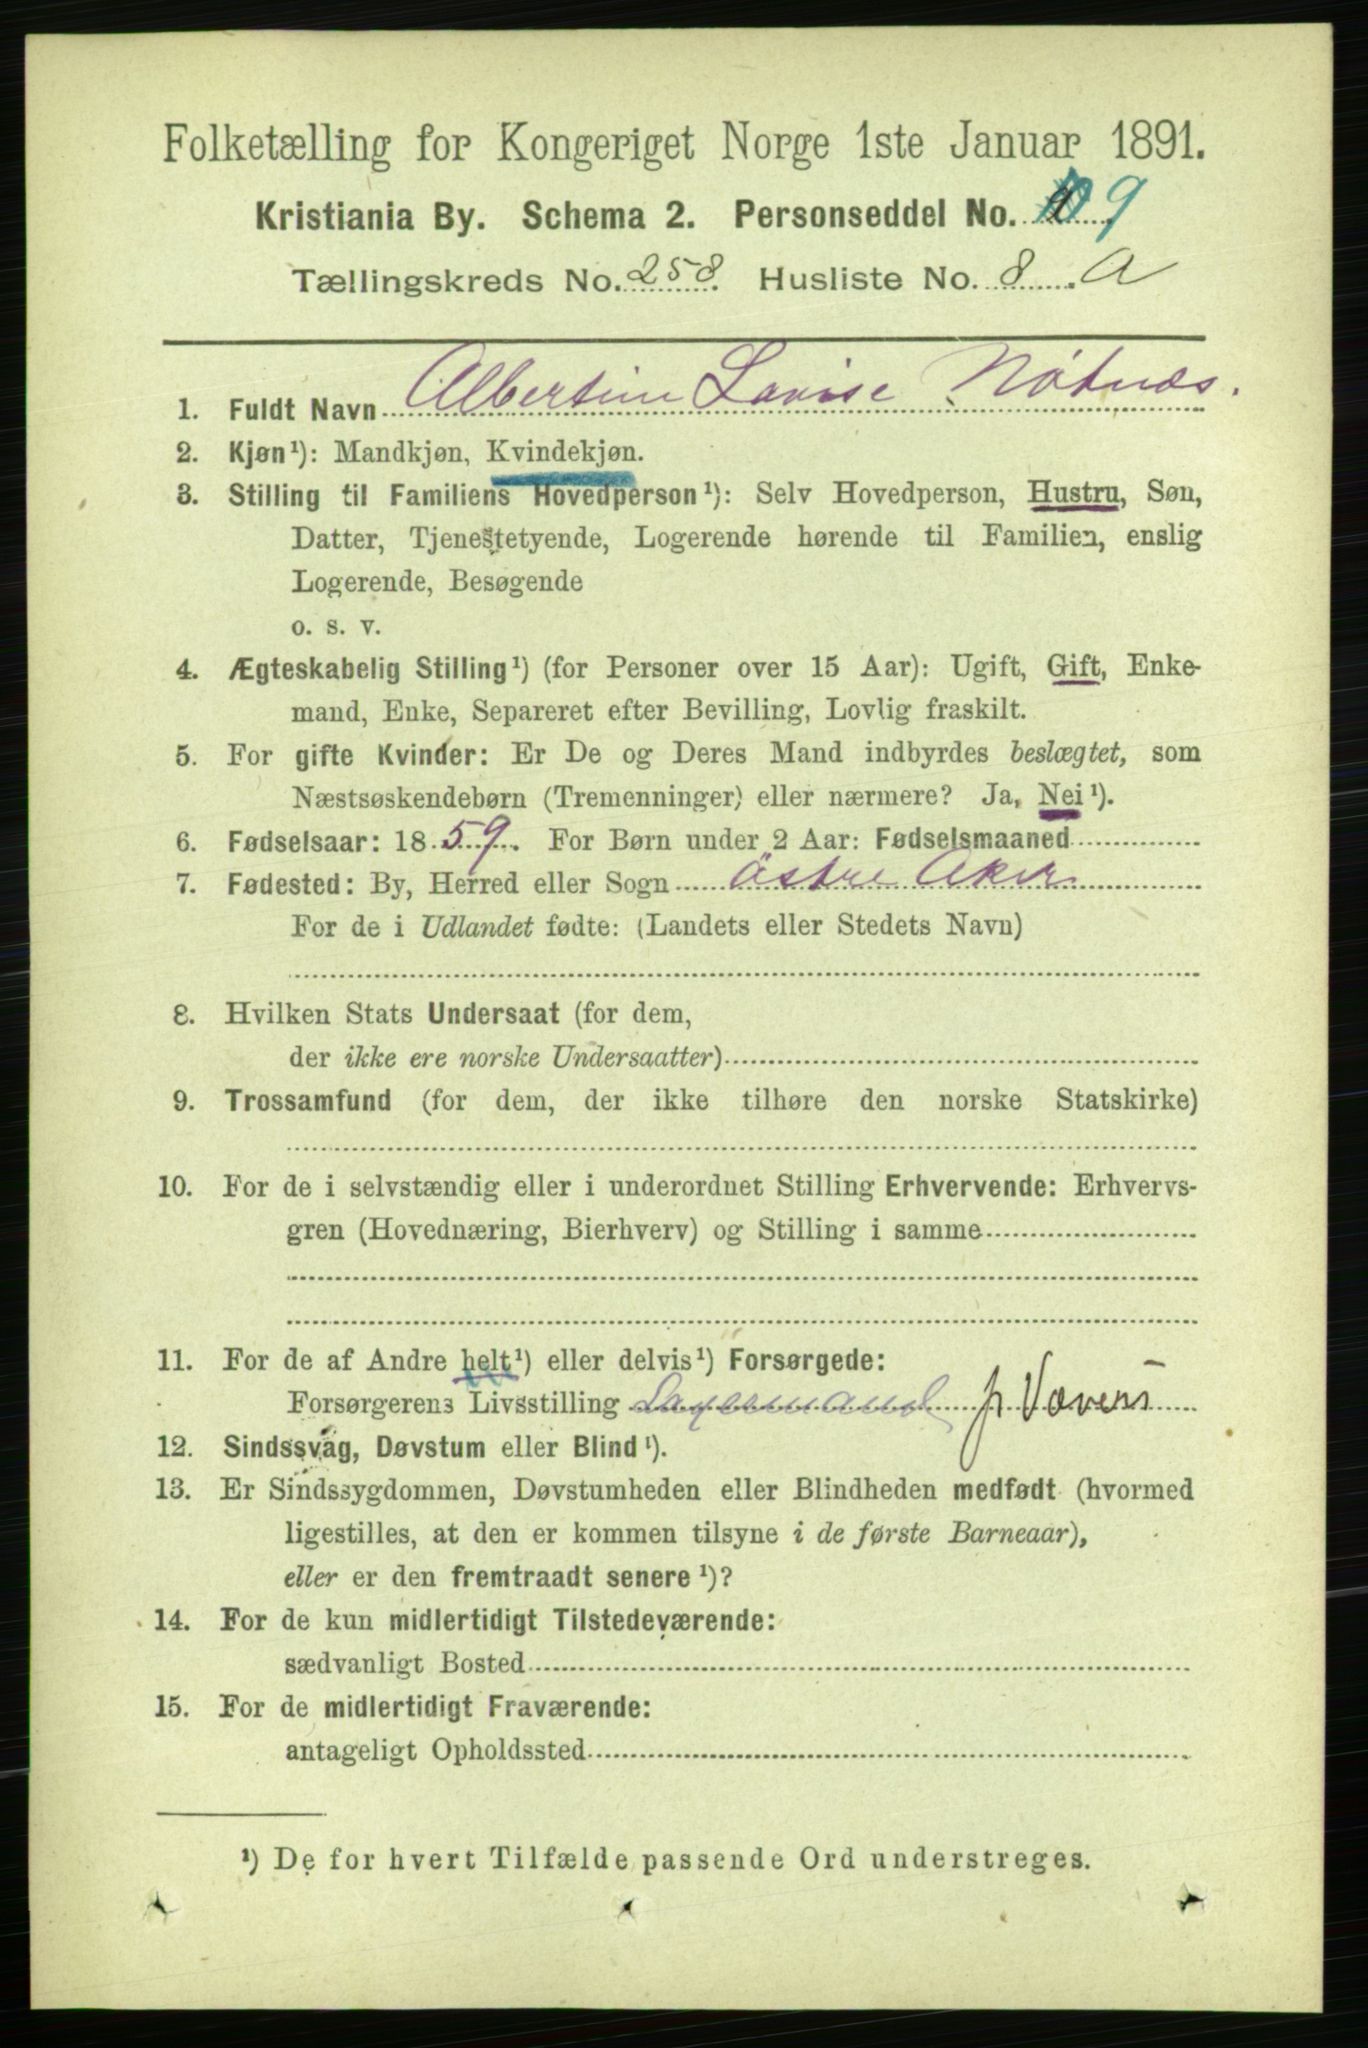 Folketælling for Kongeriget Norge 1ste Januar 1891.
Kristiania By. Schema 2. Personseddel No. 9
Tællingskreds No. 258. Husliste No. 8. A
1. Fuldt Navn Albertine Lovise Nötnæs.
2. Kjøn¹): Mandkjøn, Kvindekjøn.
3. Stilling til Familiens Hovedperson¹): Selv Hovedperson, Hustru, Søn,
Datter, Tjenestetyende, Logerende hørende til Familien, enslig
Logerende, Besøgende
o. s. v.
4. Ægteskabelig Stilling¹) (for Personer over 15 Aar): Ugift, Gift, Enke-
mand, Enke, Separeret efter Bevilling, Lovlig fraskilt.
5. For gifte Kvinder: Er De og Deres Mand indbyrdes beslægtet, som
Næstsøskendebørn (Tremenninger) eller nærmere? Ja, Nei¹).
6. Fødselsaar: 1859. For Børn under 2 Aar: Fødselsmaaned
7. Fødested: By, Herred eller Sogn Östre Aker
For de i Udlandet fødte: (Landets eller Stedets Navn)
8. Hvilken Stats Undersaat (for dem,
der ikke ere norske Undersaatter)
9. Trossamfund (for dem, der ikke tilhøre den norske Statskirke)
10. For de i selvstændig eller i underordnet Stilling Erhvervende: Erhvervs-
gren (Hovednæring, Bierhverv) og Stilling i samme
11. For de af Andre helt¹) eller delvis¹) Forsørgede:
Forsørgerens Livsstilling Lagermand
12. Sindssvag, Døvstum eller Blind¹).
13. Er Sindssygdommen, Døvstumheden eller Blindheden medfødt (hvormed
ligestilles, at den er kommen tilsyne i de første Barneaar),
eller er den fremtraadt senere¹)?
14. For de kun midlertidigt Tilstedeværende:
sædvanligt Bosted
15. For de midlertidigt Fraværende:
antageligt Opholdssted
¹) De for hvert Tilfælde passende Ord understreges.